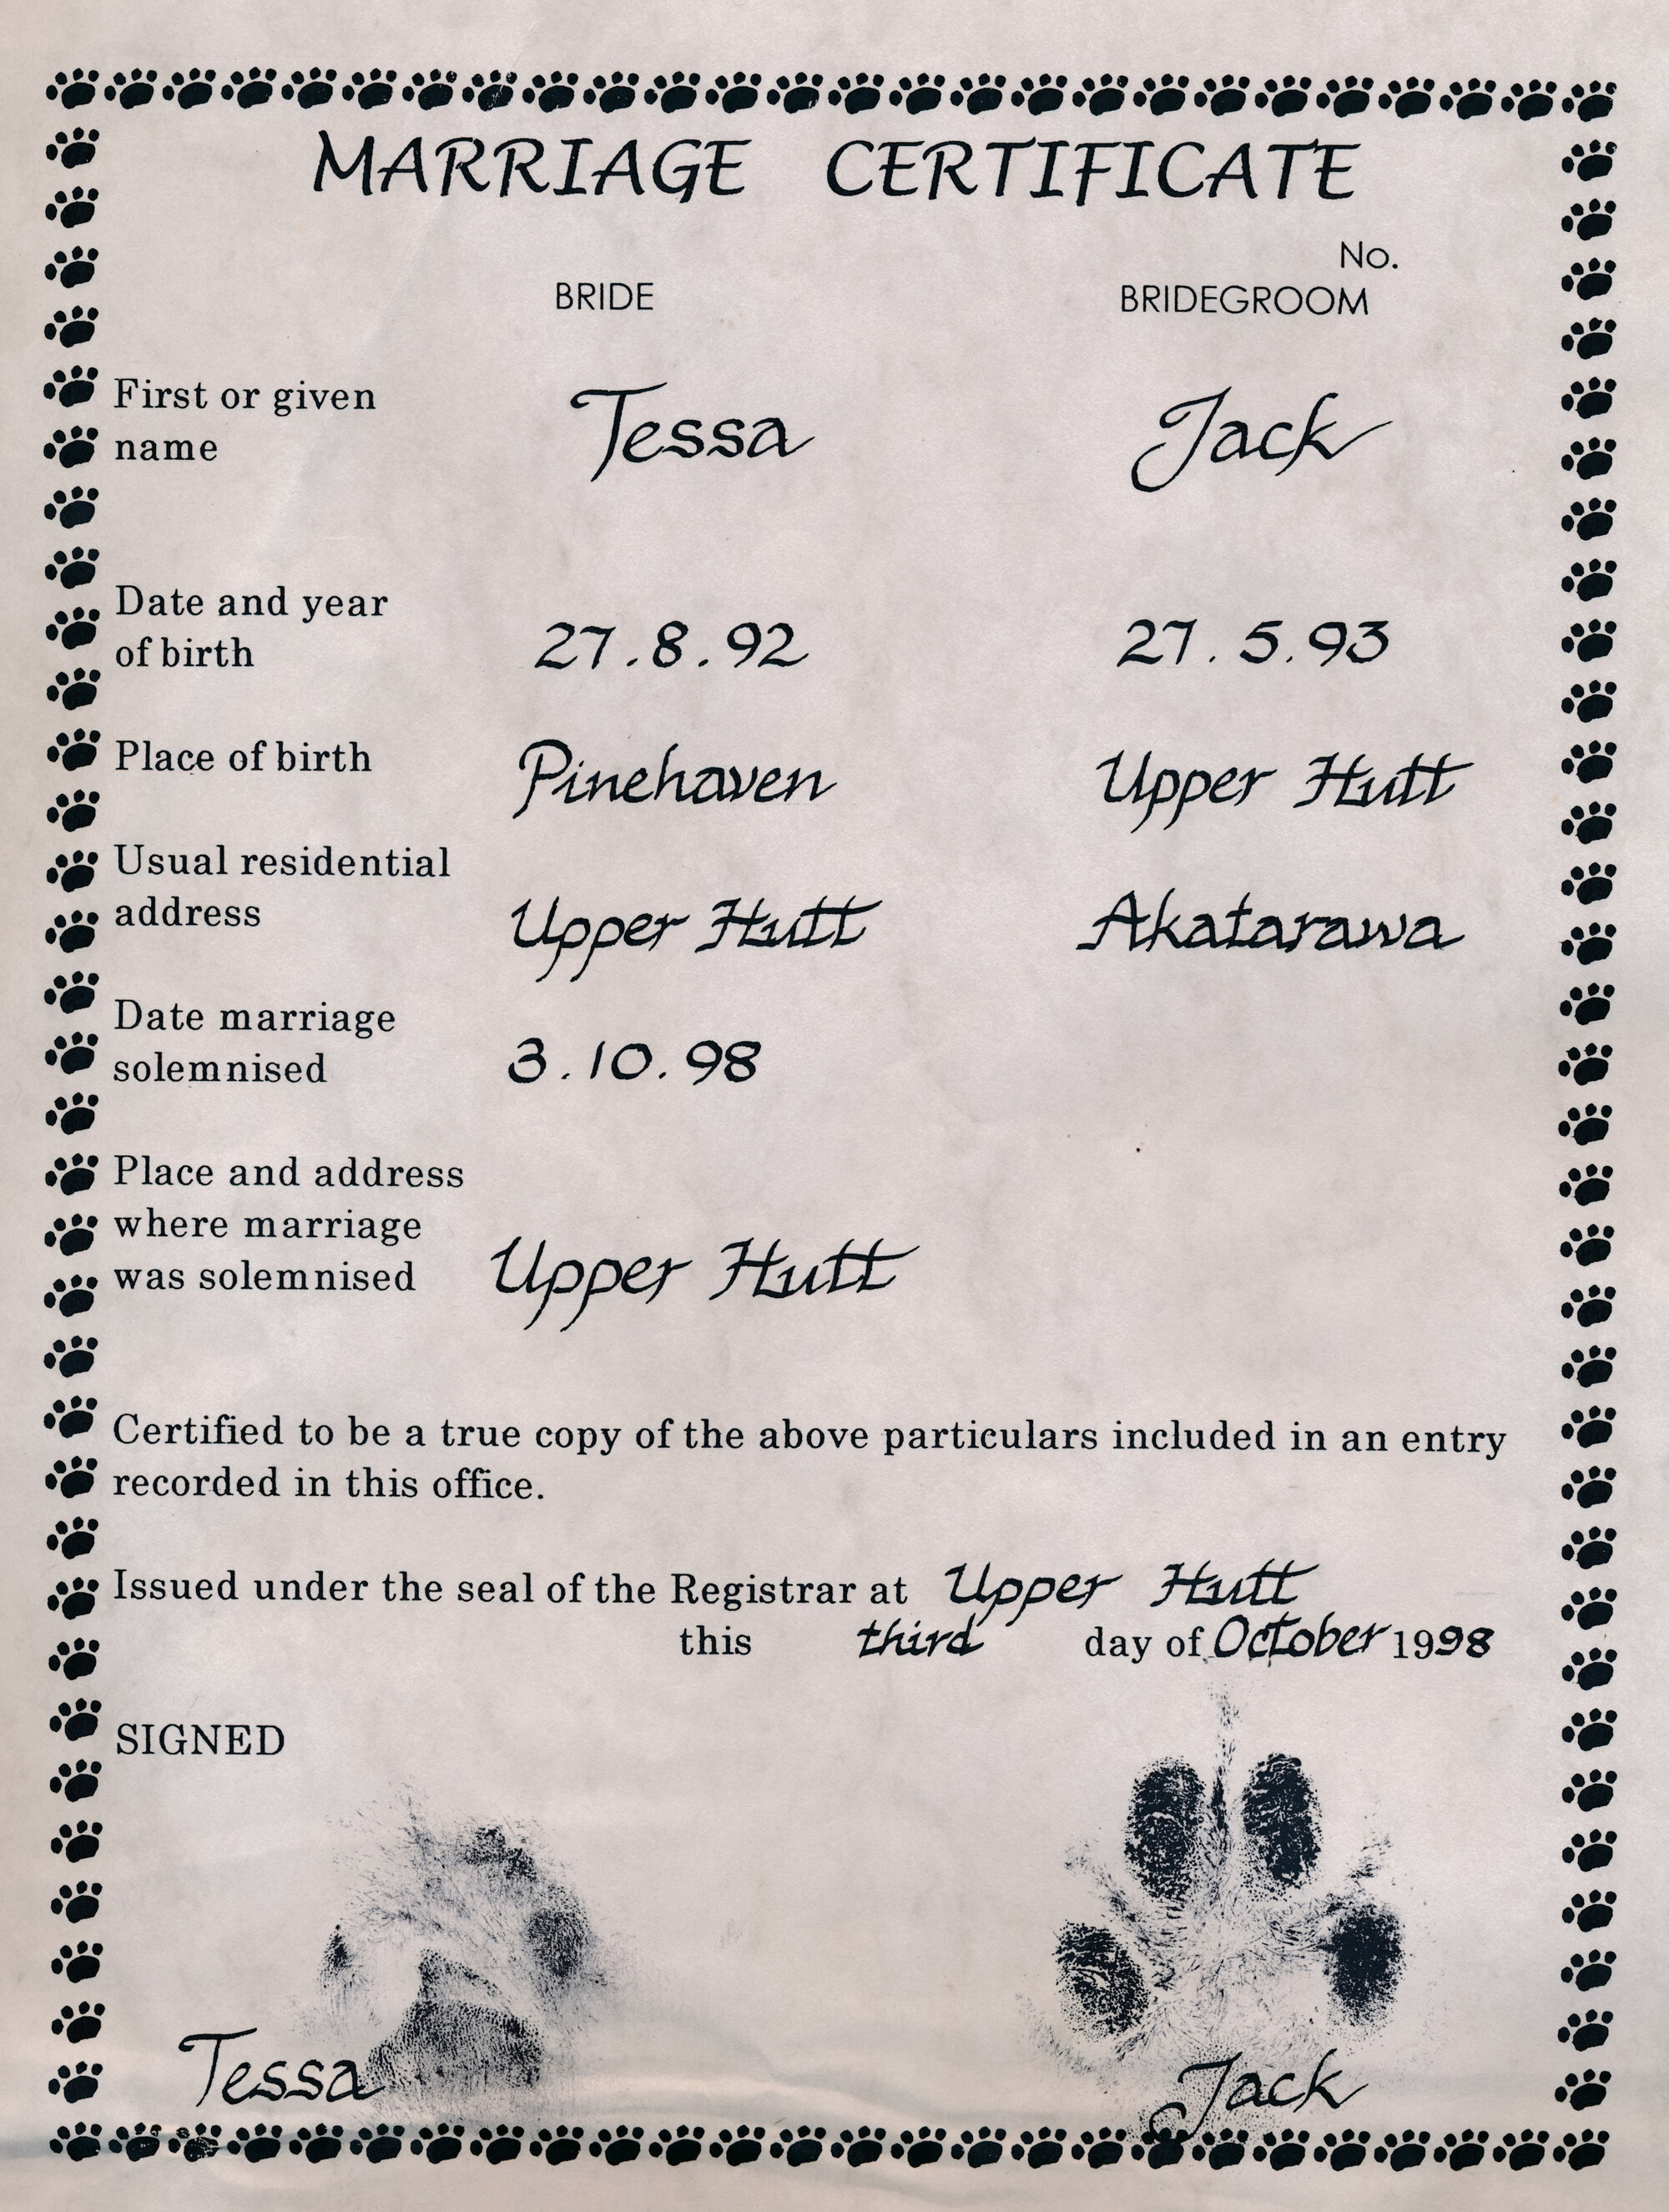 MARRIAGE CERTIFICATE
No.
BRIDE BRIDEGROOM
First or given
name Tessa Jack
Date and year
of birth 27.8.92 27.5.93
Place of birth Pinehaven Upper Hutt
Usual residential
address Upper Hutt Akatarawa
Date marriage
solemnised 3.10.98
Place and address
where marriage
was solemnised Upper Hutt
Certified to be a true copy of the above particulars included in an entry
recorded in this office.
Issued under the seal of the Registrar at Upper Hutt
this third day of October 1998
SIGNED
Tessa Jack